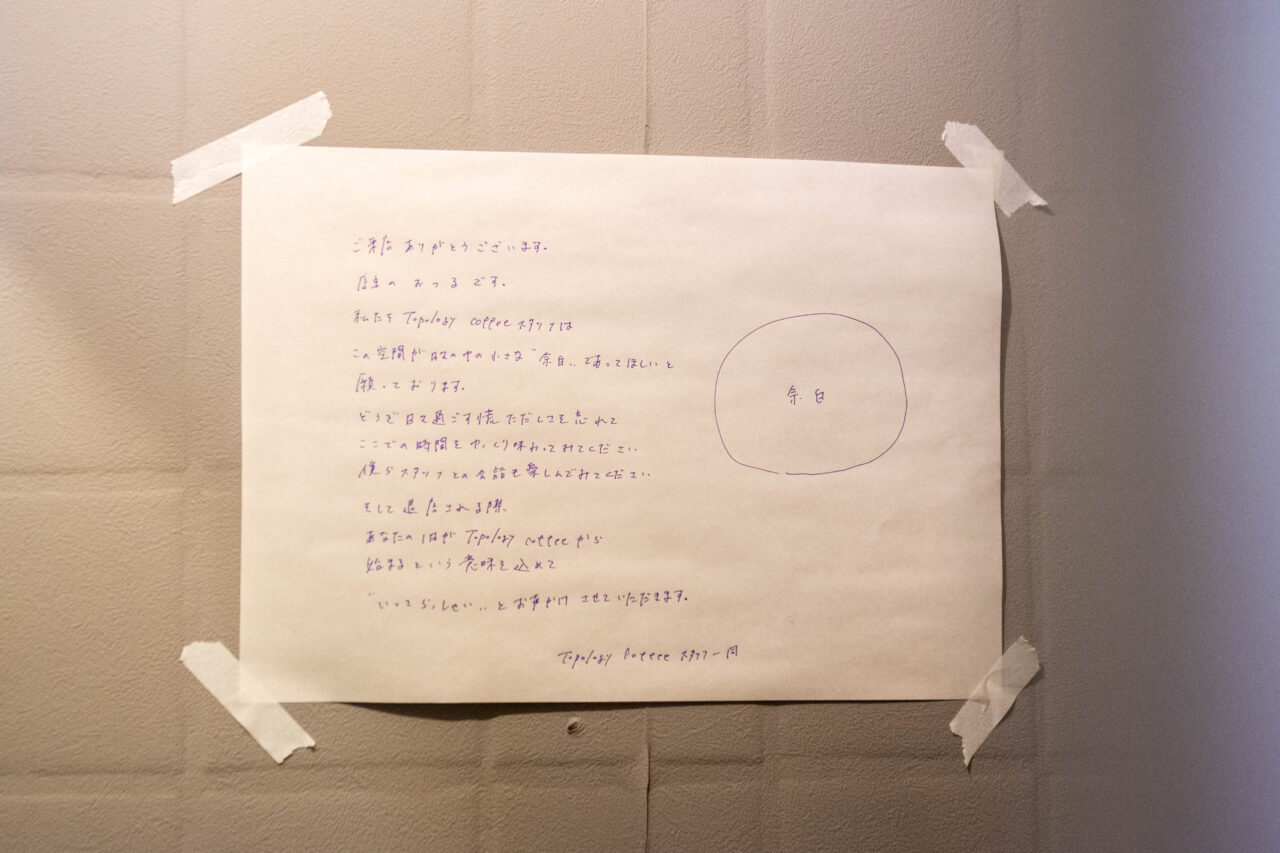 ご来店ありがとうございます。
店主の おつる です。
私たち Topology coffee スタッフは
この空間が日々の中の小さな"余白"であってほしいと
願っております。
どうぞ日々過ごす慌ただしさを忘れて
ここでの時間をゆっくり味わってみてください
僕らスタッフとの会話も楽しんでみてください
そして退店される際、
あなたの1日が Topology coffee から
始まるという意味を込めて
"いってらっしゃい"とお声がけさせていただきます。
Topology Coffee スタッフ一同
余白